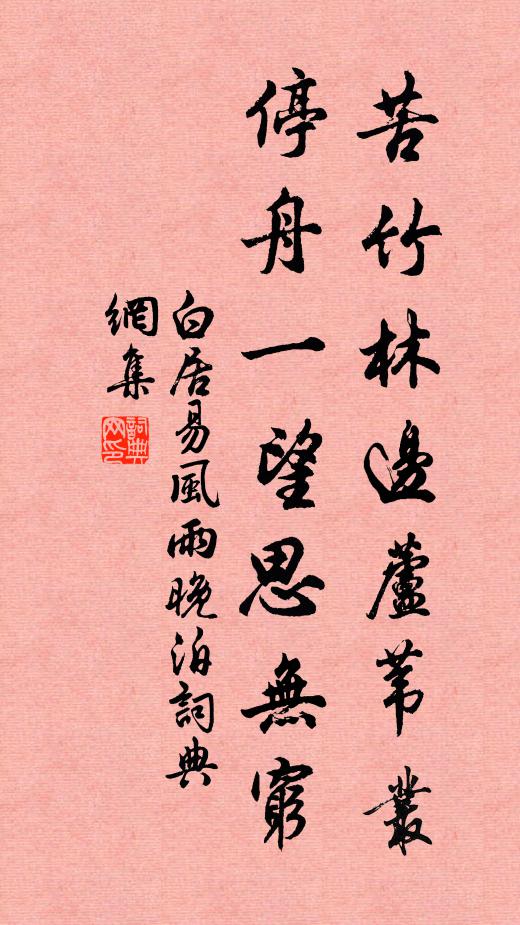 苦竹林邊蘆葦叢
停舟一望思無窮
白居易風雨晚泊詞典
網集
詞典
网印